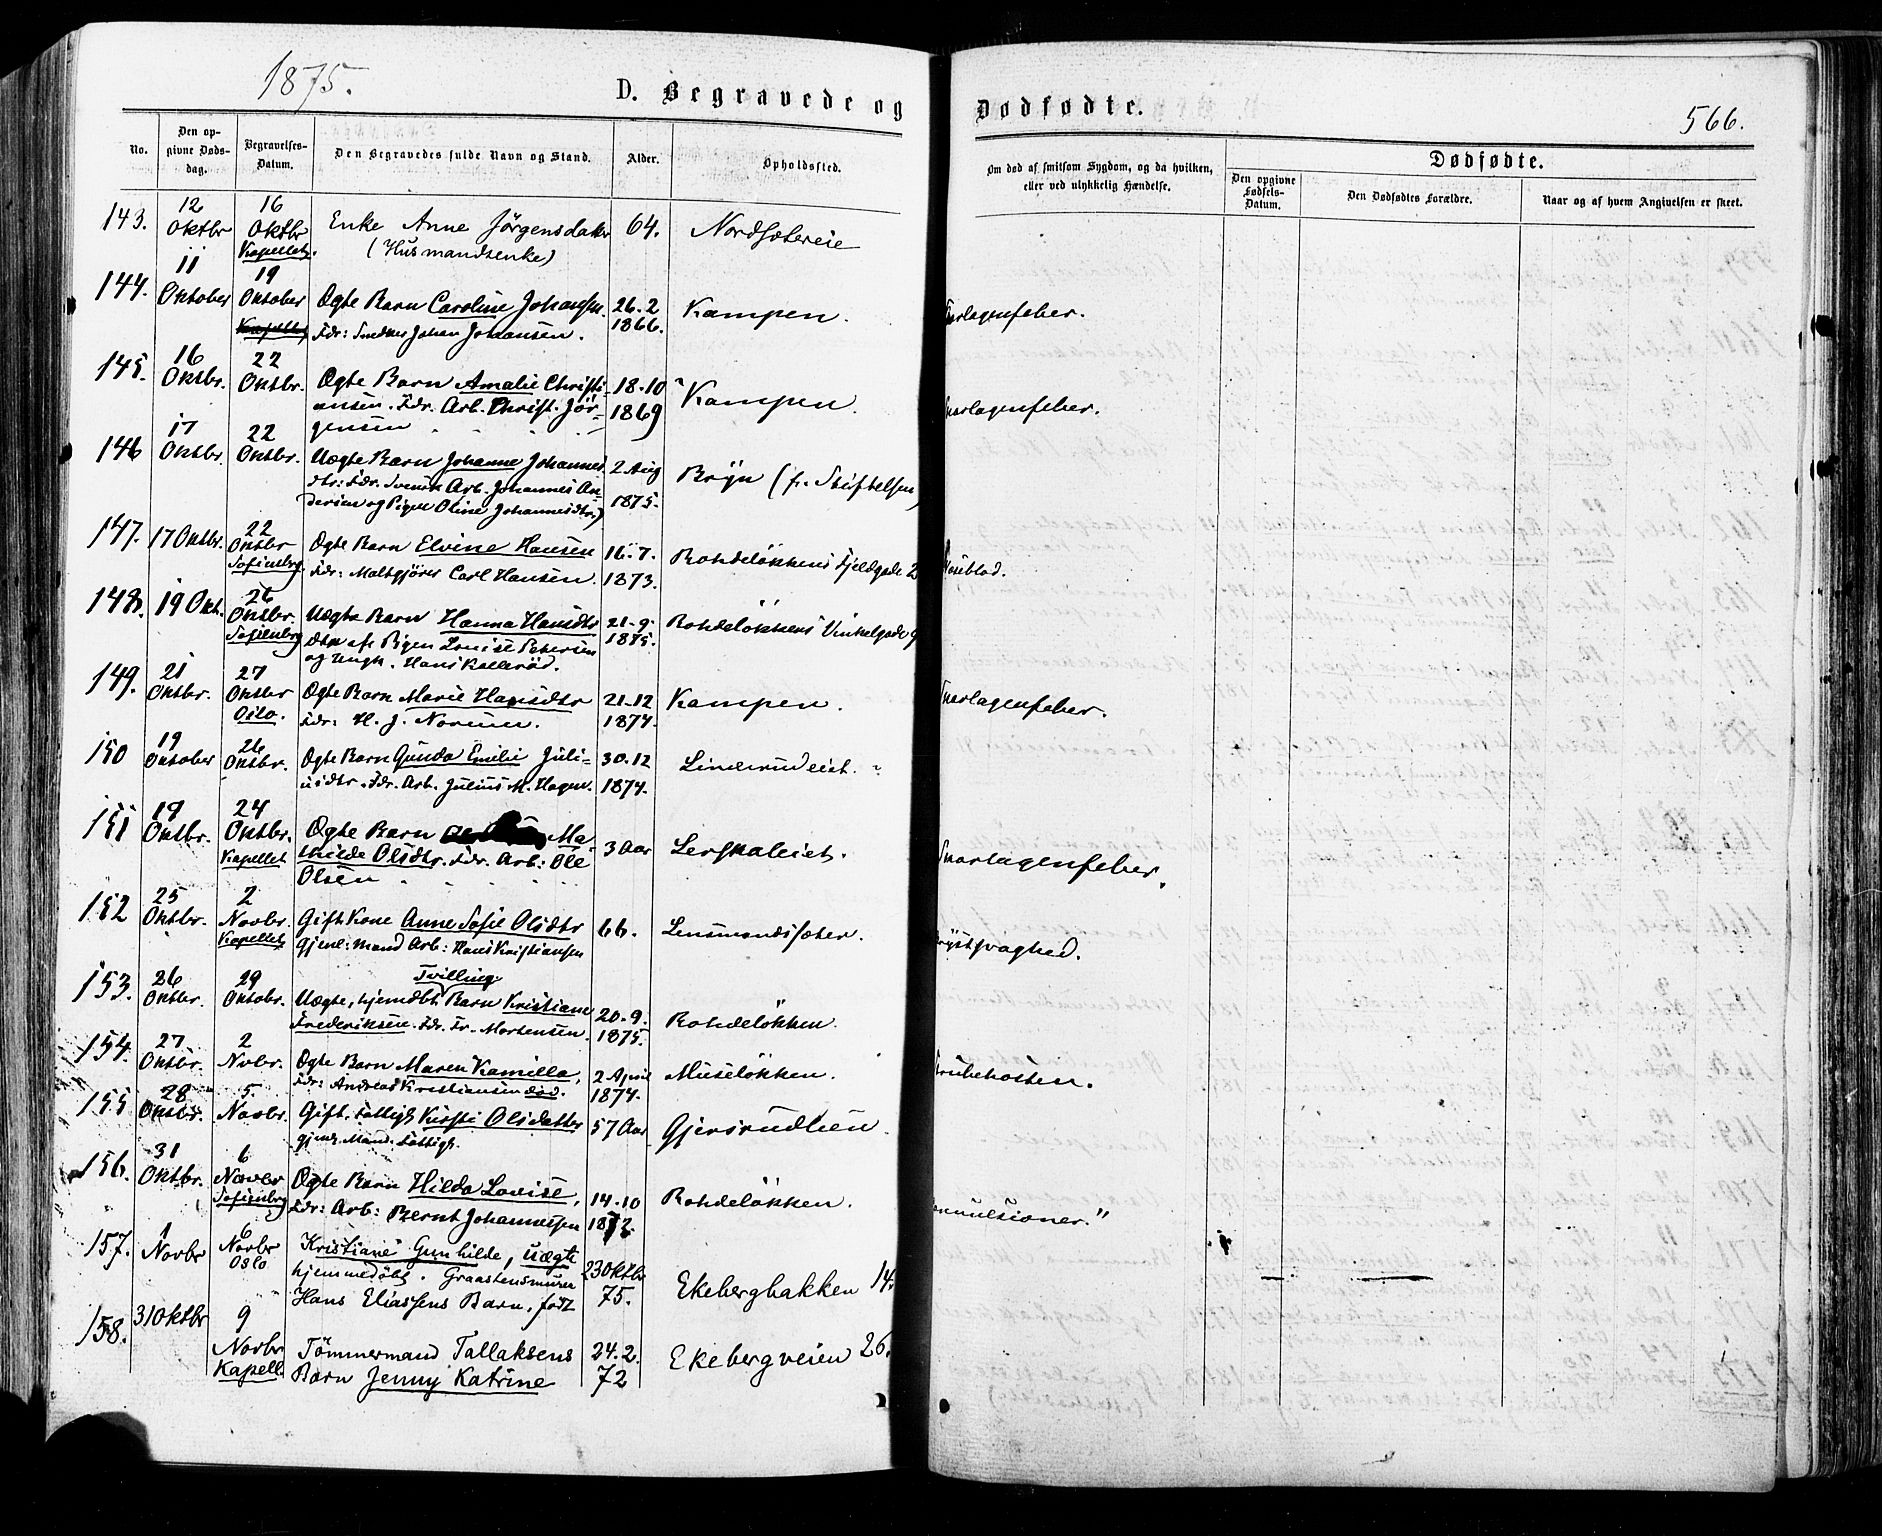 1875.
D. Begravede og
Dødfødte.
566.
No.
Den op-
givne Døds-
dag.
Begravelses-
Datum.
Den Begravedes fulde Navn og Stand.
Alder.
Opholdssted.
Om død af smitsom Sygdom, og da hvilken,
eller ved ulykkelig Hændelse.
Dødfødte.
Den opgivne
Fødsels-
Datum.
Den Dødfødtes Forældre.
Naar og af hvem Angivelsen er skeet.
143. 12 Oktbr 16 Oktbr Kapellet. Enke Anne Jörgensdatter 64. Nordsætereie
(Husmandsenke)
144. 11 Oktober 19 Oktober Kapellet Ægte Barn Caroline Johansen. 26.2 1866. Kampen.
Fdr: Snedker Johan Johansen.
145. 16 Oktbr. 22 Oktbr. Ægte Barn Amalie Christi- 18.10 1869 Kampen.
ansen. Fdr. Arb. Christ. Jör-
gensen
146 17 Oktbr. 22 Oktbr. Uægte Barn Johanne Johannes 2 Aug 1875. Bryn (fr. Stiftelsen)
dtr: Fdr. Svensk Arb. Johannes An-
dersen og Pigen Oline Johannesdtr.)
147. 17 Oktbr. 22 Oktbr Sofienbrg. Ægte Barn Elvine Hansen 16.7. 1873. Rohdelökkens Fjeldgade 2
Fdr: Maltgjörer Carl Hansen.
148. 19 Okt. 26 Oktbr. Sofienberg Uægte Barn Hanna Hansdtr 21.9. 1875. Rohdelökkens Vinkelgade 9
dtr af Pigen Lovise Petersen
og Ungk. Hans Kallerød.
149. 21 Oktbr. 27 Oktbr Oslo. Ægte Barn Marie Hansdtr 21.12 1874. Kampen.
Fdr: H. J. Normen.
150 19 Oktober 26 Oktbr. Ægte Barn Gunda Emilie Juli- 30.12 1874. Linderudeiet.
usdtr. Fdr. Arb. Julius M. Hagen.
151 19 Oktbr. 24 Oktbr. Kapellet Ægte Barn Ma- 3 Aar Lerskaleiet.
thilde Olsdtr. Fdr. Arb: Ole
Olsen
152 25 Oktbr. 2 Novbr. Kapellet Gift Kone Anne Sofie Olsdtr 66. Lensmandssæter.
Gjenl: Mand Arb: Hans Kristiansen
153. 26 Oktbr. 29 Oktobr. Tvilling
Uægte, hjemdøbt Barn Kristiane 20.9. 1875. Rohdelökken.
Frederiksen. Fdr. Fr. Mortensen.
154. 27 Oktbr. 2 Nvbr. Ægte Barn Maren Kamilla, 2 April 1874. Museløkken.
Fdr: Andreas Kristiansen død.
155 28 Oktbr. 5. Novbr. Gift. Fattigl. Kirsti Olsdatter 57 Aar Gjersrudlien.
gjenl. Mand. Fattigl.
156. 31 Oktbr. 6 Novbr Sofienbrg Ægte Barn Hilda Lovise, 14.10 1872. Rohdelökken.
Fdr: Arb: Bernt Johannessen
157. 1 Novbr 6 Novbr Oslo Kristiane Gunhilde, uægte 23 Oktbr 75. Ekebergbakken 14.
hjemmedöbt. Graastensmurer
Hans Eliassens Barn, født
158. 31 Oktbr 9 Novbr Kapell. Tömmermand Tallaksens 24.2. 72 Ekebergveien 26.
Barn Jenny Katrine
arlagenfeber.
arlagenfeber.
oseblod.
arlagenfeber.
arlagenfeber.
rystsvaghed.
rubehosten.
onvulsioner."